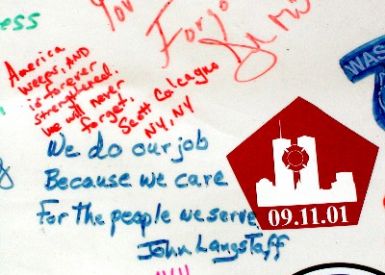 You
Forg
ess
America
weeps, AND
is forever
strengthened.
We will never
forget.
Scott Calcagno
NY, NY
WAS
We do our job
Because we care
For the people we serve
John Langstaff
09.11.01